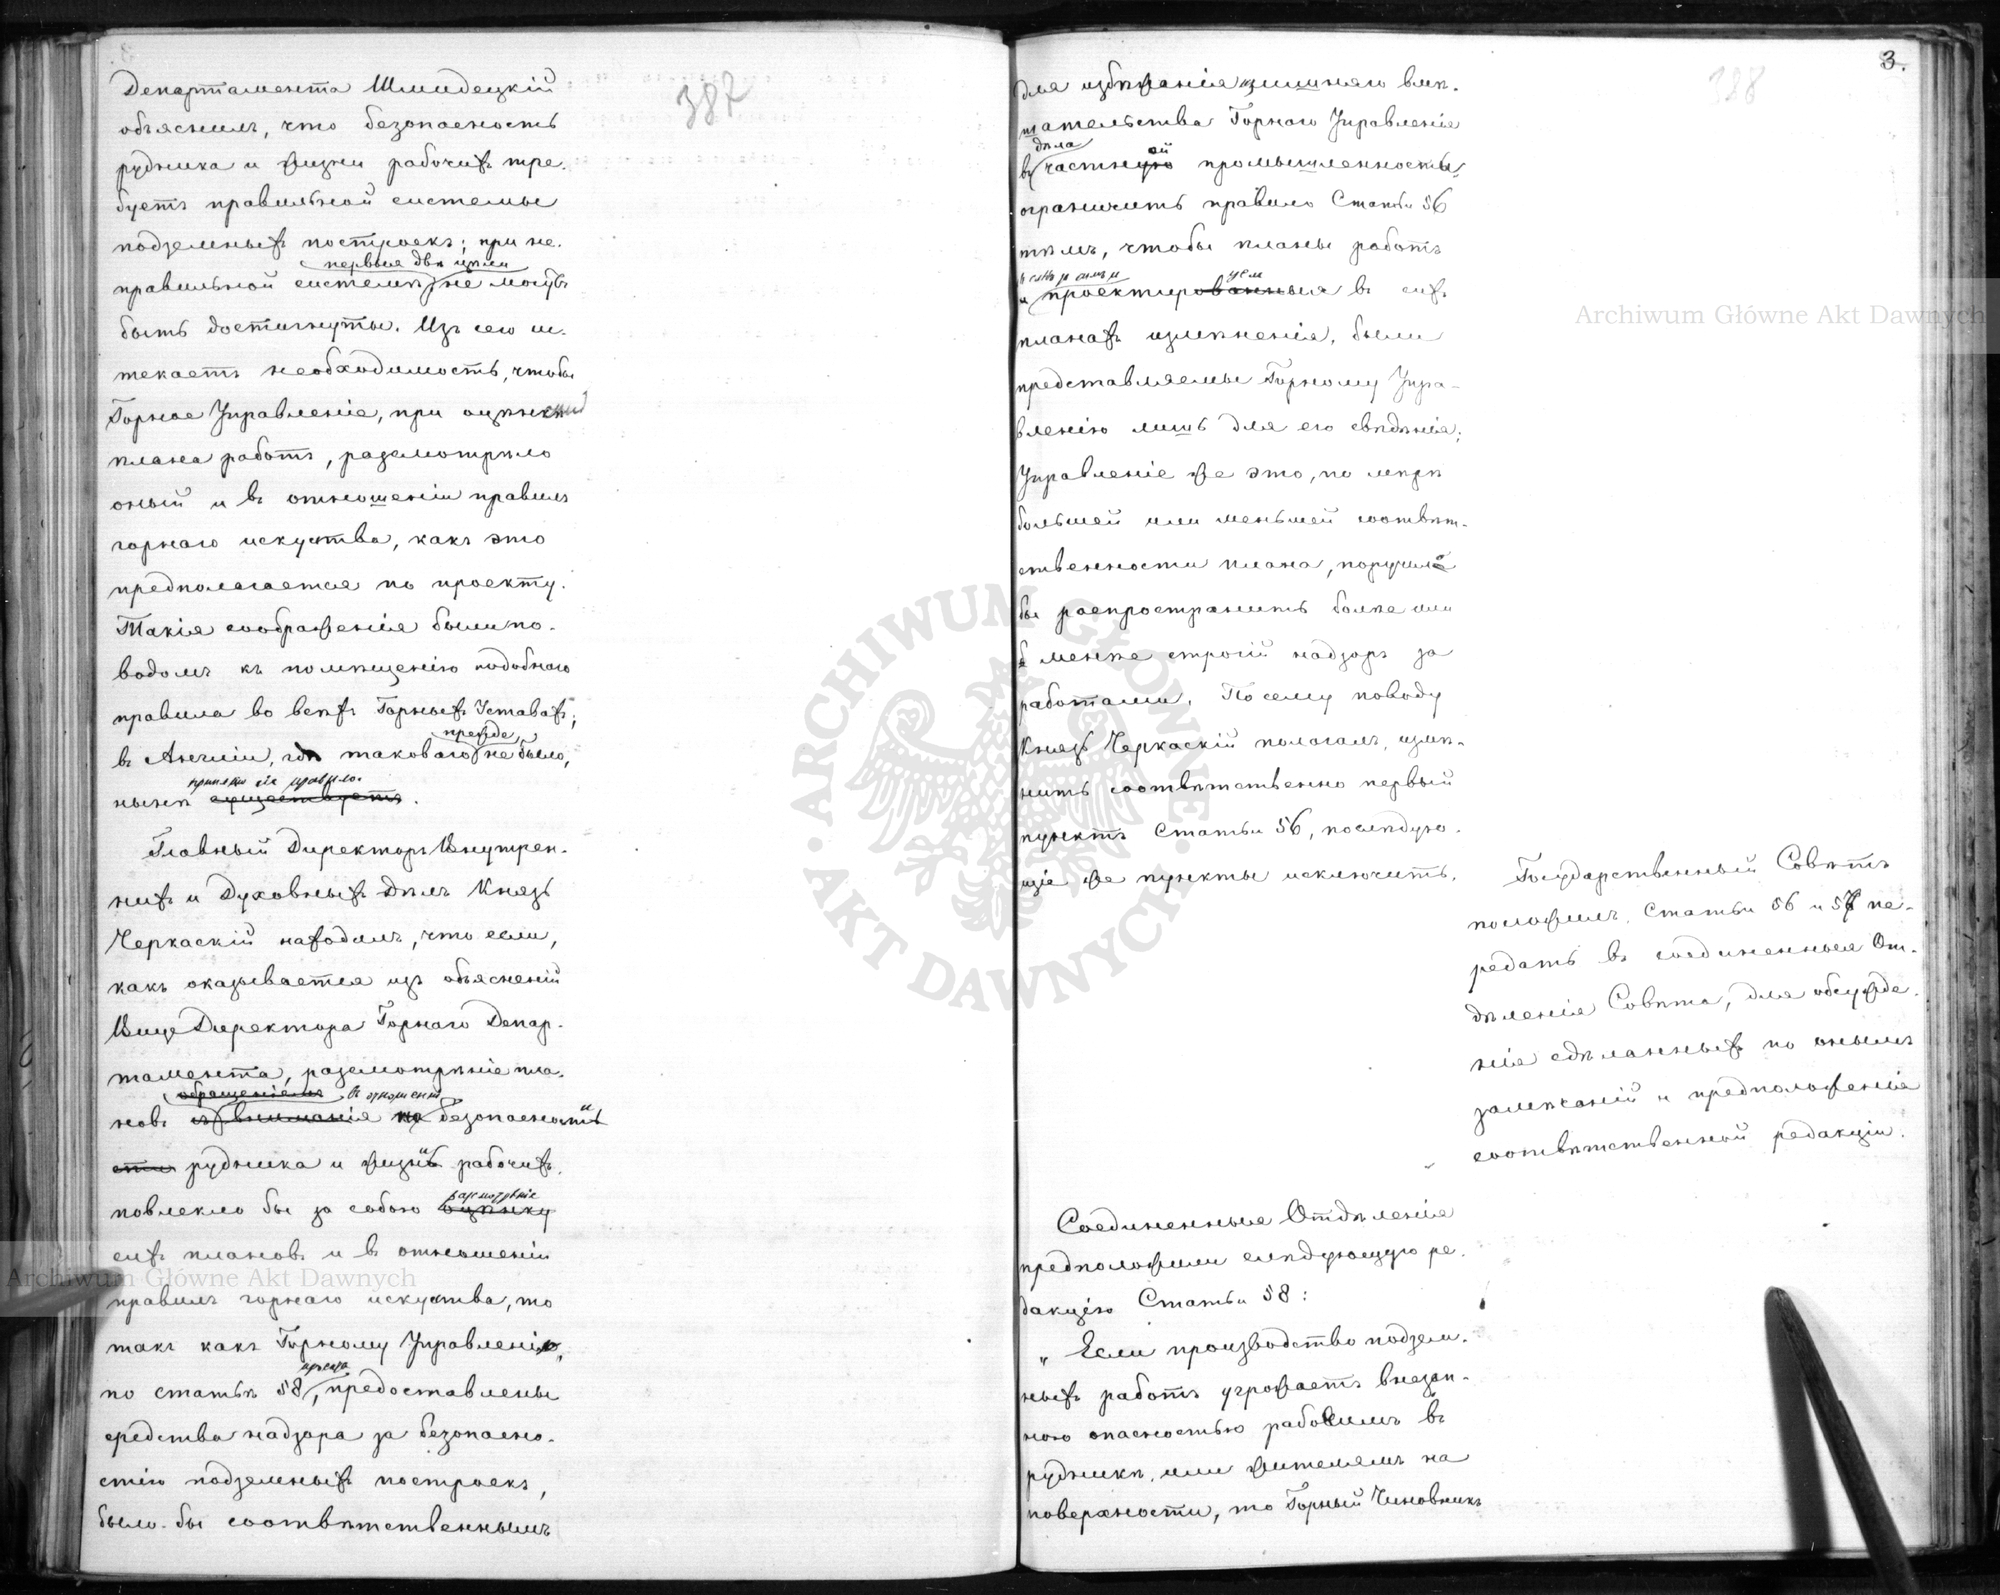 387
Департамента Шмидецкій
объяснилъ, что безопасность
рудника и жизни рабочихъ тре-
буетъ правильной системы
подземныхъ построекъ; при не-
первыя двѣ цѣли
правильной системѣ не могутъ
быть достигнуты. Изъ сего ис-
текаетъ необходимость, чтобы
Горное Управленіе, при оцѣнкѣ
плана работъ, разсмотрѣло
оный и въ отношеніи правилъ
горнаго искуства, какъ это
предполагается по проекту.
Такія соображенія были по-
водомъ къ помѣщенію подобнаго
правила во всѣхъ Горныхъ Уставахъ;
прежде
въ Англіи, гдѣ таковаго не было,
принято сіе правило.
нынѣ существуетъ.
Главный Директоръ Внутрен-
нихъ и Духовныхъ Дѣлъ Князь
Черкаскій находилъ, что если,
какъ оказывается изъ объясненій
Вице Директора Горнаго Депар-
тамента, разсмотрѣніе пла-
обращеніемъ въ отношеніи
новъ съ вниманія на безопасность
сти рудника и жизни рабочихъ,
разсмотрѣніе
повлекло бы за собою оцѣнку
сихъ плановъ и въ отношеніи
правилъ горнаго искуства, то
такъ какъ Горному Управленію,
проекта
по статьѣ 58, предоставлены
средства надзора за безопасно-
стію подземныхъ построекъ,
было бы соотвѣтственнымъ
3.
388
для избѣжанія излишняго вмѣ-
шательства Горнаго Управленія
дѣла ой
въ частную промышленности,
ограничить правило Статьи 56
тѣмъ, чтобы планы работъ
и проектированныя въ сихъ
планахъ измѣненія, были
представляемы Горному Упра-
вленію лишь для его свѣдѣнія;
Управленіе же это, по мѣрѣ
большей или меньшей соотвѣт-
ственности плана, поручило
бы распространить болѣе или
менѣе строгій надзоръ за
работами. По сему поводу
Князь Черкаскій полагалъ, измѣ-
нить соотвѣтственно первый
пунктъ Статьи 56, послѣдую-
щіе же пункты исключить.
Государственный Совѣтъ
положилъ, Статьи 56 и 57 пе-
редать въ соединенныя От-
дѣленія Совѣта, для обсужде-
нія сдѣланныхъ по онымъ
замѣчаній и предположенія
соотвѣтственной редакціи.
Соединенныя Отдѣленія
предположили слѣдующую ре-
дакцію Статьи 58:
„Если производство подзем-
ныхъ работъ угрожаетъ внезап-
ною опасностью рабочимъ въ
рудникѣ, или жителямъ на
поверхности, то Горный Чиновникъ
Archiwum Główne Akt Dawnych
Archiwum Główne Akt Dawnych
· ARCHIWUM GŁÓWNE · AKT DAWNYCH